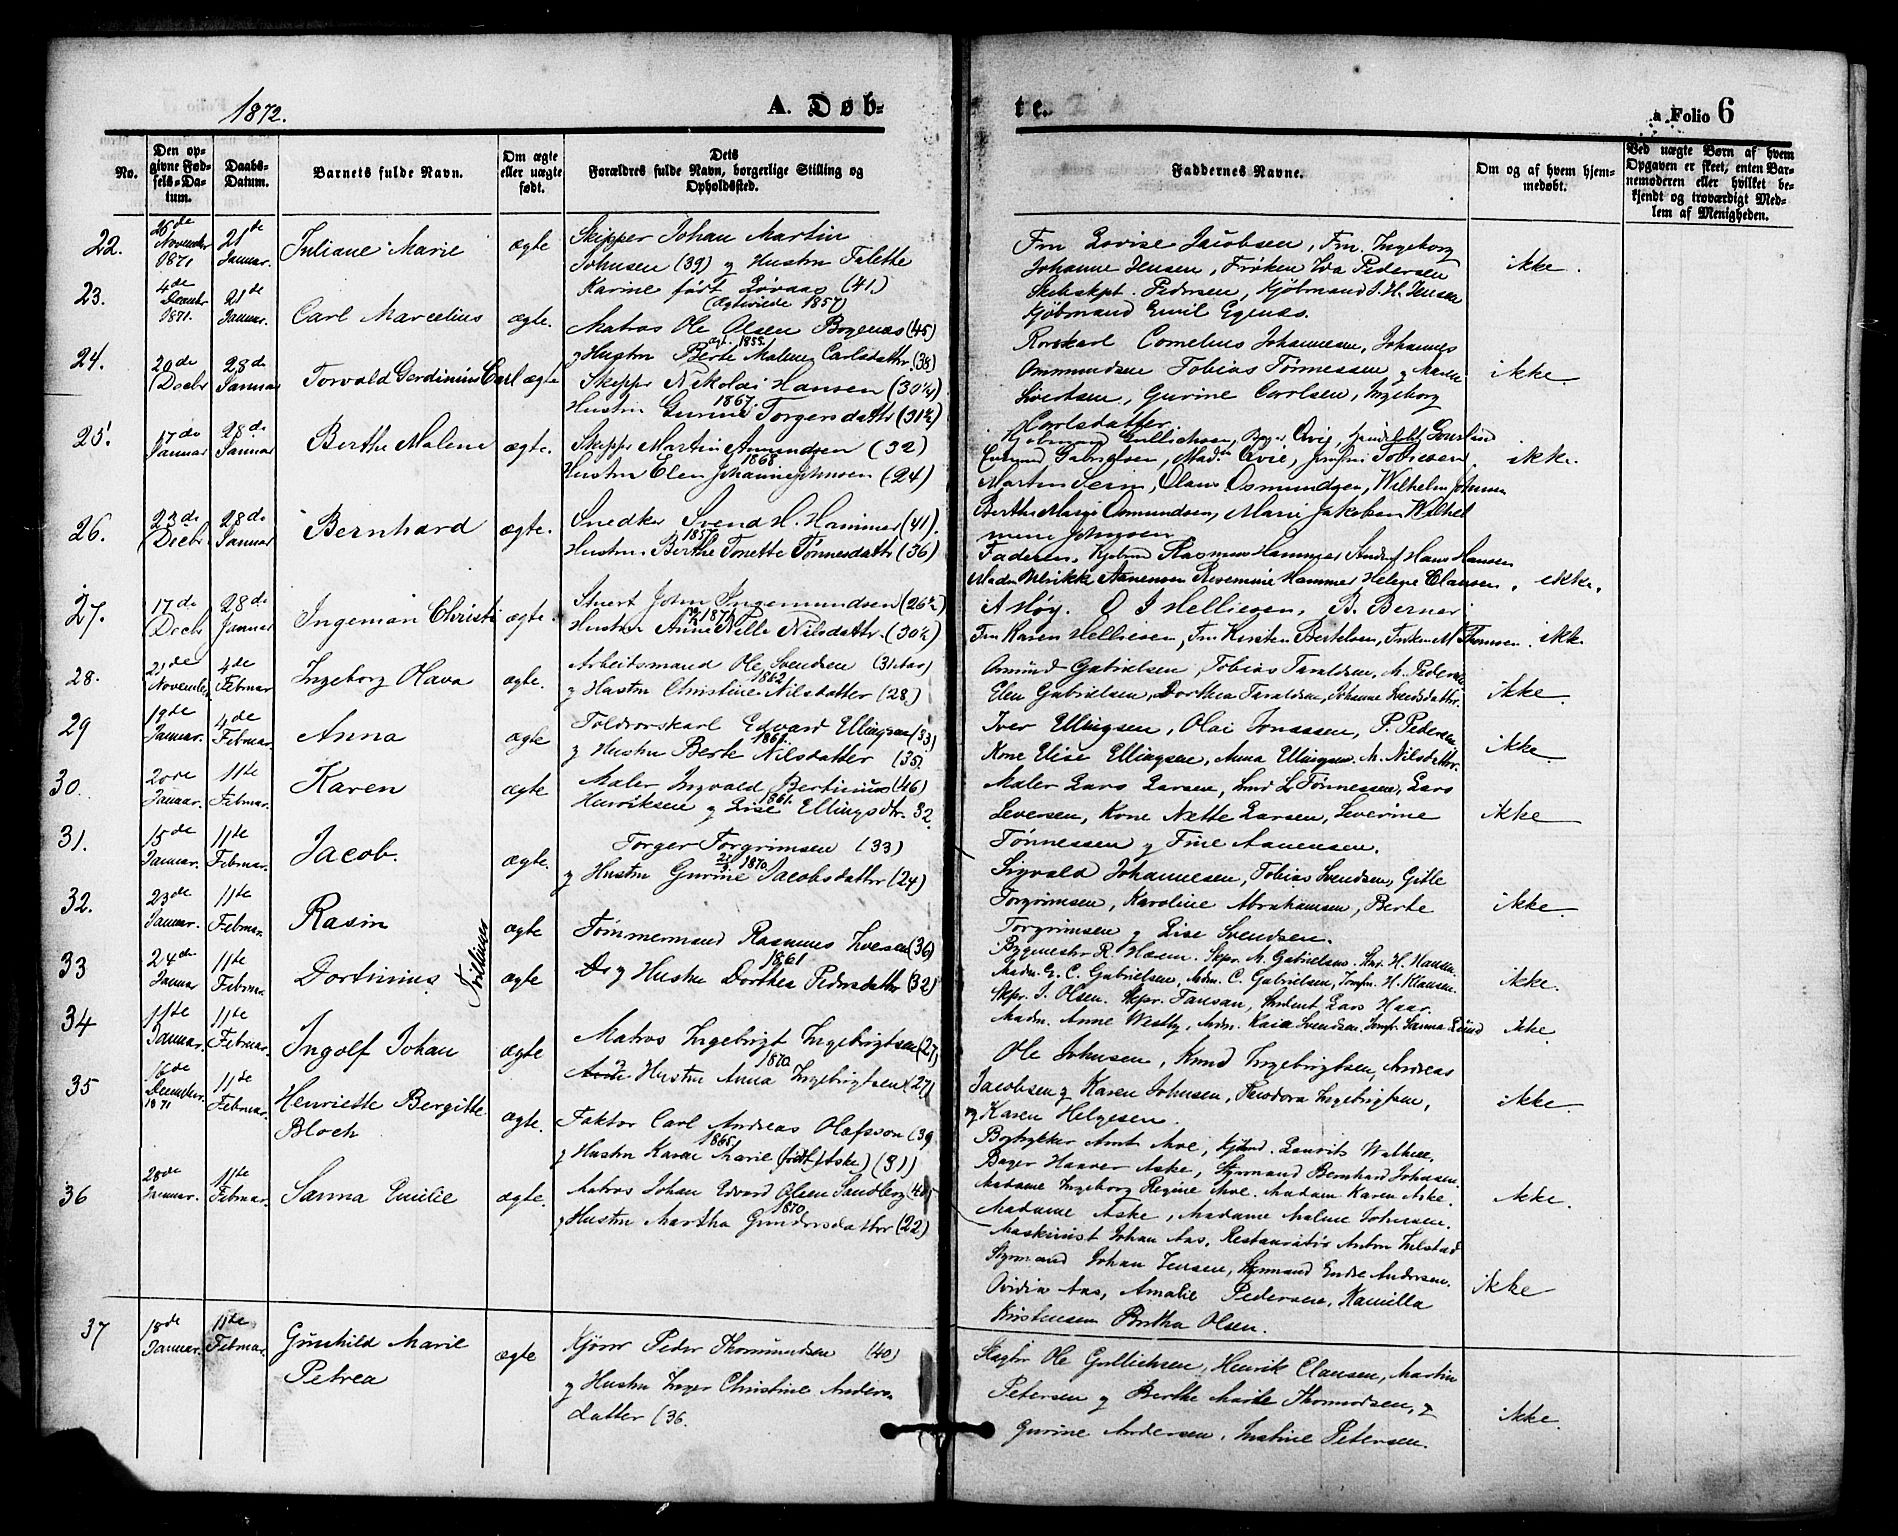 1872.
A. Døb-
te.
a Folio 6
No.
Den op-
givne Fød-
sels-Da-
tum.
Daabs-
Datum.
Barnets fulde Navn.
Om ægte
eller uægte
født.
Dets
Forældres fulde Navn, borgerlige Stilling og
Opholdssted.
Faddernes Navne.
Om og af hvem hjem-
medøbt.
Ved uægte Børn af hvem
Opgaven er skeet, enten Bar-
nemoderen eller hvilket be-
kjendt og troværdigt Med-
lem af Menigheden.
22.
25de
November
1871
21de
Januar.
Juliane Marie
ægte
Skipper Johan Martin
Johnsen (39) og Hustru Talette
Karine født Løvaas (41.)
(Ægteviede 1857)
Fru Lovise Jacobsen, Fru Ingeborg
Johanne Jensen, Frøken Ida Pedersen
Skibskpt. Pedersen, Kjøbmand J. H. Jensen
Kjøbmand Emil Egenæs.
ikke.
23.
4de
Decembr
1871.
21de
Januar.
Carl Marcelius
ægte.
Matros Ole Olsen Bogenæs (45)
gt. 1855.
og Hustru Berte Malene Carlsdatter (38)
Rorskarl Cornelius Johannesen, Johannes
Ommundsen Tobias Tønnessen og Maren
Sivertsen, Gurine Carlsen, Ingeborg
Carlsdatter.
ikke.
24.
20de
Decbr
28de
Januar
Torvald Gerdinius Carl
ægte
Skipper Nikolai Hansen (30½)
1867.
Hustru Gurine Torgersdattr (31½)
Kjøbmand Gullichsen, Bager Qvie,
Gabrielsen, Madm Qvie, Jomfru Tobiesen
ikke.
25.
17de
Januar
28de
Januar
Berthe Malene
ægte.
Skipper Martin Amundsen (32)
1868
Hustru Elen Johanne Johnsen (24)
Martin Osmundsen, Wilhelm Johnsen
Berthe Marie Osmundsen, Marie Jakobsen Wilhel
mine Johnsen
26.
23de
Decbr
28de
Januar
Bernhard
ægte.
Snedker Svend H. Hammer (41).
1857
Hustru Berthe Tonette Tønnesdattr (36)
Faderen, Rasmus Hammer Hans Hansen
Madm Ulrikke Aanensen Hammer Helene Clausen.
ikke.
27.
17de
Decbr
28de
Januar
Ingeman Christi
ægte.
Stuert John Ingemundsen (26½)
1871
Hustru Anne Nille Nilsdattr (30½)
A Høy. O J Helliesen, B. Berner
Fru Karen Helliesen, Fru Kirsten Bertelsen, Frøken M Thomsen.
ikke
28.
21de
November
4de
Februar
Ingeborg Olava
ægte.
Arbeitsmand Ole Svendsen (31 Aar)
1862
og Hustru Christine Nilsdatter (28)
Amund Gabrielsen, Tobias Taraldsen, M. Pedersen
Elen Gabrielsen, Dorthea Taraldsen, Johanne Svendsdattr.
ikke
29
19de
Januar.
4de
Februar.
Anna
ægte
Toldrorskarl Edvard Ellingsen (33)
1861.
og Hustru Berte Nilsdatter (35)
Iver Ellingsen, Olai Jonassen, P. Pedersen
Kone Elise Ellingsen, Anna Ellingsen, M. Nilsdattr.
ikke.
30.
20de
Januar.
11te
Februar.
Karen
ægte
Maler Ingvald Bertinius (46)
1861.
Henriksen og Lise Ellingsdtr. 32.
Maler Lars Larsen, Smd L Tønnessen, Lars
Seversen, Kone Nette Larsen, Severine
Tønnessen og Fine Aanensen.
ikke
31.
15de
Januar.
11te
Februar.
Jacob.
ægte.
Torger Torgrimsen (33)
1870.
og Hustru Gurine Jacobsdatter (24)
Sigvald Johannesen, Tobias Svendsen, Gitle
Torgrimsen, Karoline Abrahamsen, Berte
Torgrimsen og Lise Svendsen.
ikke.
32.
23de
Januar.
11te
Februar.
Rasin
ægte
Tvillinger
Tømmermand Rasmus Iversen (36)
1861
og Hustru Dorthea Pedersdatter (32)
Bygmester R. Hosen. Skpr. M. Gabrielsen. Snr. H. Hansen.
Madm. E. C. Gabrielsen, Mdm. C. Gabrielsen, Jomfr. H. Klausen.
ikke.
33
24de
Januar
11te
Februar.
Dortinius
ægte
Skpr. J. Olsen. Skpr. Tausan, Student Lars Haar.
Madm. Anne Westby, Mdm. Kaia Svendsen. Jomfr. Sanna Lund
ikke.
34
11te
Januar.
11te
Februar.
Ingolf Johan
ægte
Matros Ingebrigt Ingebrigtsen (27)
1870.
Hustru Anna Ingebrigtsen (27)
Ole Johnsen, Knud Ingebrigtsen, Andreas
Jacobsen og Karen Johnsen, Theodora Ingebrigtsen,
og Karen Helgesen.
ikke.
35
16de
Decembr.
1871
11te
Februar.
Henriette Bergitte
Bloch
ægte.
Faktor Carl Andreas Olafsson (39
1865
og Hustru Karen Marie (født Aske) (31)
Bogtrykker Arnt Ave, Kjbmd. Laurits Wathne.
Bager Haaver Aske, Styrmand Bernhard Johnsen.
Madame Ingeborg Regine Ave. Madam Karen Aske.
Madame Aske, Madame Malene Johnsen.
ikke.
36
28de
Januar.
11te
Februar.
Sanna Emilie
ægte.
Matros Johan Edvard Olsen Sandberg
1870.
og Hustru Martha Gundersdatter (22)
Maskinist Johan Aas, Restauratør Anton Tilstad
Styrmand Johan Jensen, Styrmand Endre Andersen.
Ovidia Aas, Amalie Pedersen, Kamilla
Kristensen Bertha Olsen.
ikke
37
18de
Januar.
11te
Februar.
Gunhild Marie
Petrea
ægte
Kjører Peder Thormundsen (40)
og Hustru Inger Christine Anders-
datter (36.
Slagter Ole Gullichsen, Henrik Clausen, Martin
Petersen og Berthe Marie Thormodsen, &
Gurine Andersen, Justine Petersen.
ikke.